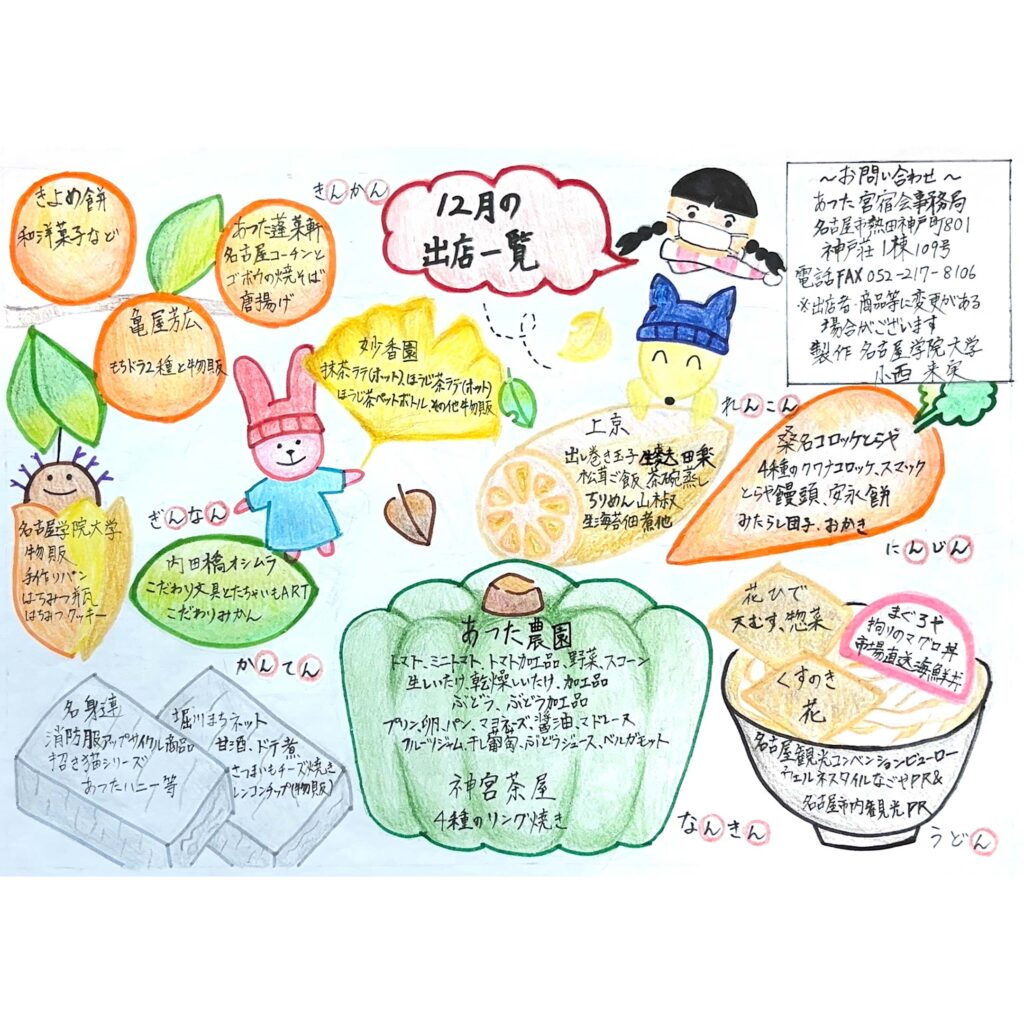 きよめ餅
和洋菓子など
あつた蓬莱軒
名古屋コーチンと
ゴボウの焼そば
唐揚げ
亀屋芳広
もちドラ2種と物販
きんかん
12月の
出店一覧
～お問い合わせ～
あつた宮宿会事務局
名古屋市熱田神戸町801
神戸荘1棟109号
電話FAX 052-217-8106
※出店者・商品等に変更がある
場合がございます
製作 名古屋学院大学
小西 未実
妙香園
抹茶ラテ(ホット)、ほうじ茶ラテ(ホット)
ほうじ茶ペットボトル、その他物販
ぎんなん
名古屋学院大学
物販
手作りパン
はちみつ井瓦
はちみつクッキー
内田橋オシムラ
こだわり文具とたちゃいもART
こだわりみかん
上京
出し巻き玉子 生麩 田楽
松茸ご飯 茶碗蒸し
ちりめん山椒
生海苔佃煮他
れんこん
桑名コロッケとらや
4種のクワナコロッケ、スマック
とらや饅頭、安永餅
みたらし団子、おかき
にんじん
かんてん
名身連
消防服アップサイクル商品
招き猫シリーズ
あつたハニー等
堀川まちネット
甘酒、ドテ煮
さつまいもチーズ焼き
レンコンチップ(物販)
あつた農園
トマト、ミニトマト、トマト加工品、野菜、スコーン
生しいたけ、乾燥しいたけ、加工品
ぶどう、ぶどう加工品
プリン、卵、パン、マヨネーズ、醤油、マドレーヌ
フルーツジャム、干し葡萄、ぶどうジュース、ベルガモット
神宮茶屋
4種のリング焼き
なんきん
花ひで
天むす、惣菜
まぐろや
拘りのマグロ丼
市場直送海鮮丼
くすのき
花
名古屋観光コンベンションビューロー
ウェルネスタイルなごやPR&
名古屋市内観光PR
うどん